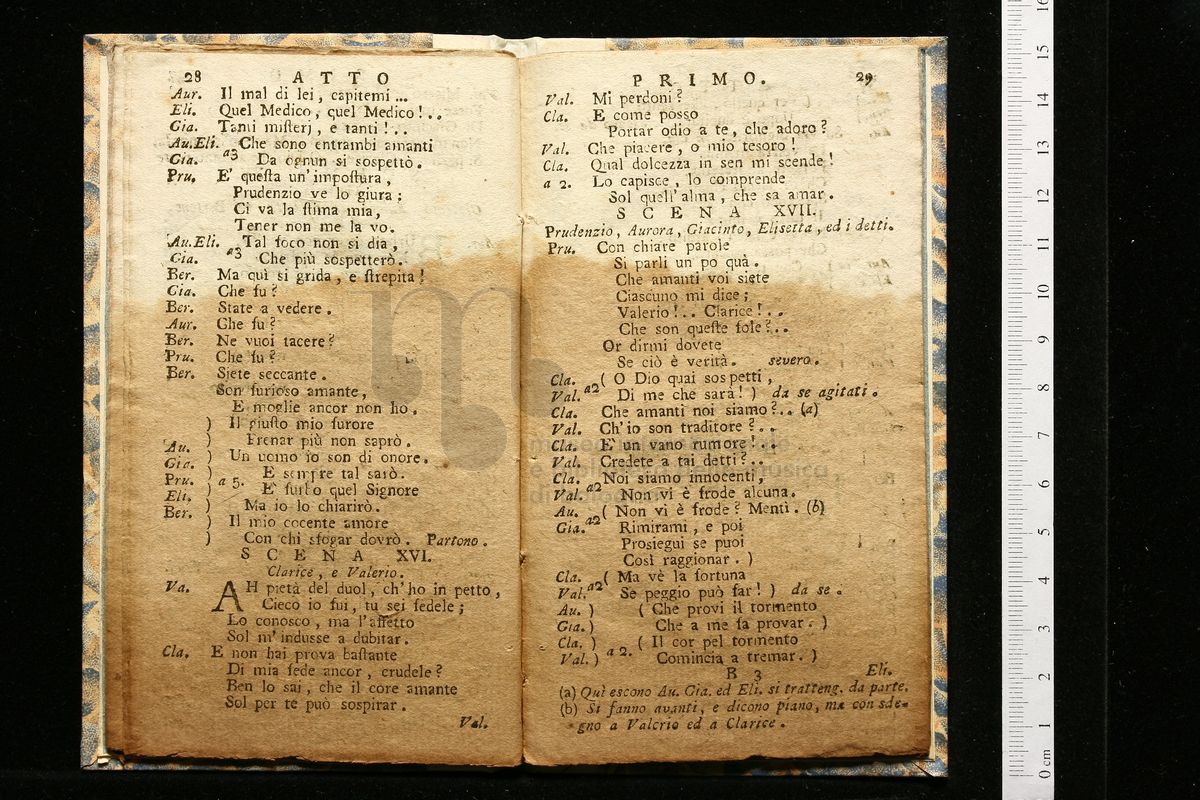 28 ATTO
Aur. Il mal di lei, capitemi ...
Eli. Quel Medico, quel Medico!..
Gia. Tanti misterj, e tanti!..
Au.Eli. Che sono entrambi amanti
Gia. a3 Da ognun si sospettò.
Pru. E' questa un' impostura,
Prudenzio ve lo giura;
Ci va la stima mia,
Tener non me la vo.
Au.Eli. Tal foco non si dia,
Gia. a3 Che più sospetterò.
Ber. Ma quì si grida, e strepita!
Gia. Che fu?
Ber. State a vedere.
Aur. Che fu?
Ber. Ne vuoi tacere?
Pru. Che fu?
Ber. Siete seccante.
Son furioso amante,
E moglie ancor non ho.
) Il giusto mio furore
) Frenar più non saprò.
Au. ) Un uomo io son di onore.
Gia. ) E sempre tal sarò.
Pru. ) a 5. E' furbo quel Signore
Eli. ) Ma io lo chiarirò.
Ber. ) Il mio cocente amore
) Con chi sfogar dovrò. Partono.
SCENA XVI.
Clarice, e Valerio.
Va. AH pietà del duol, ch' ho in petto,
Cieco io fui, tu sei fedele;
Lo conosco, ma l' affetto
Sol m' indusse a dubitar.
Cla. E non hai prova bastante
Di mia fede ancor, crudele?
Ben lo sai, che il core amante
Sol per te può sospirar.
Val.
PRIMO. 29
Val. Mi perdoni?
Cla. E come posso
Portar odio a te, che adoro?
Val. Che piacere, o mio tesoro!
Cla. Qual dolcezza in sen mi scende!
a 2. Lo capisce, lo comprende
Sol quell' alma, che sa amar.
SCENA XVII.
Prudenzio, Aurora, Giacinto, Elisetta, ed i detti.
Pru. Con chiare parole
Si parli un po quà.
Che amanti voi siete
Ciascuno mi dice;
Valerio!.. Clarice!..
Che son queste fole?..
Or dirmi dovete
Se ciò è verità. severo.
Cla. ( O Dio quai sospetti,
Val. a2 Di me che sarà! ) da se agitati.
Cla. Che amanti noi siamo?.. (a)
Val. Ch' io son traditore?..
Cla. E' un vano rumore!..
Val. Credete a tai detti?..
Cla. Noi siamo innocenti,
Val. a2 Non vi è frode alcuna.
Au. ( Non vi è frode? Mentì. (b)
Gia. a2 Rimirami, e poi
Prosiegui se puoi
Così raggionar. )
Cla. ( Ma vè la fortuna
Val. a2 Se peggio può far! ) da se.
Au. ) ( Che provi il tormento
Gia. ) Che a me fa provar. )
Cla. ) a 2. ( Il cor pel tormento
Val. ) Comincia a tremar. )
B 3 Eli.
(a) Quì escono Au. Gia. ed Eli. si tratteng. da parte.
(b) Si fanno avanti, e dicono piano, ma con sdegno a Valerio ed a Clarice.
museo
musica
0 cm 1 2 3 4 5 6 7 8 9 10 11 12 13 14 15 16